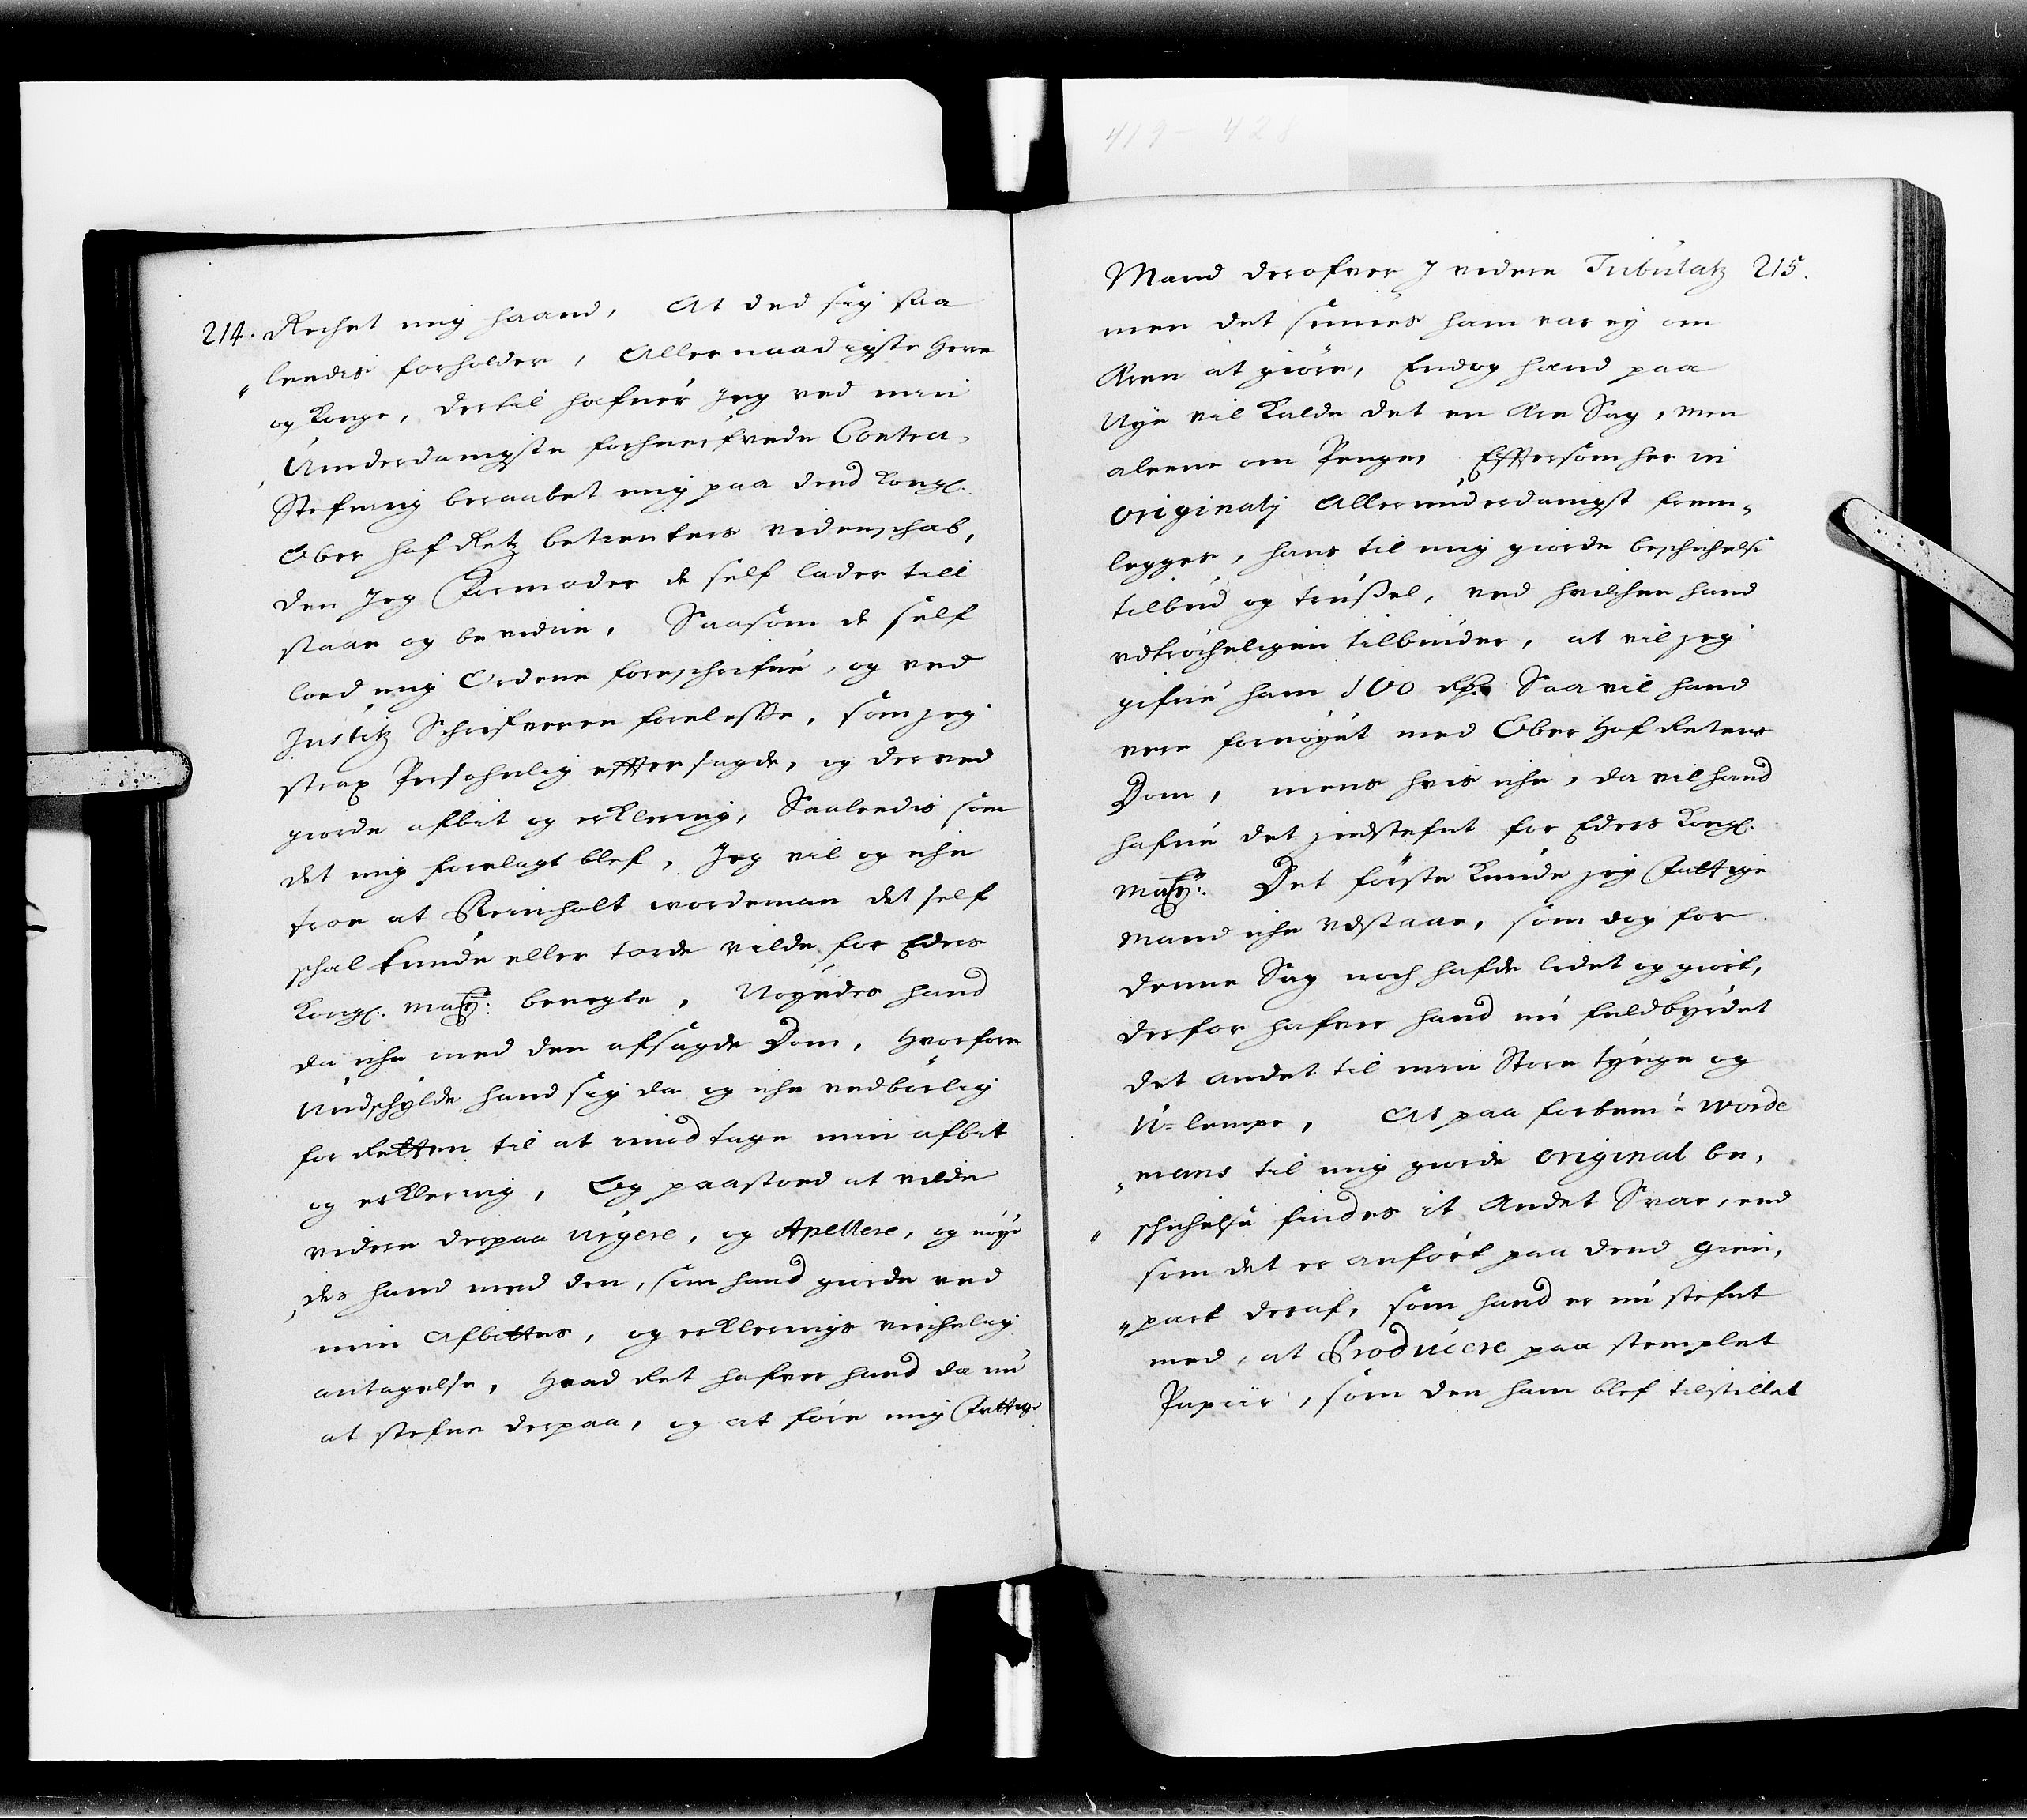 214. Rechet mig haand, At ded sig saa
„leedis forholder, Allernaadigste Herre
og Konge, dertil hafuer jeg ved min
Underdanigste forhuerfvede Contra„
Stefning beraabet mig paa dend Kongl:
Ober hof Retz betienters videnschab,
den jeg formoder de self lader till
staae og bevidne, Saasom de self
loed mig Ordene foreschrifue, og ved
Justitz Schrifveren forelesse, som jeg
strax Persohnlig efftersagde, og derved
giorde afbet og erklering, Saaleedis som
det mig forelagt blef, Jeg vil og iche
troe at Reinholt wordeman det self
schal kunde eller torde vilde for Eders
Kongl: May: benegte, Nøyedes hand
da iche med den afsagde Dom, Hvorfore
Undschylde hand sig da og iche vedbørlig
for Retten til at imodtage min afbet
og erklering, Og paastoed at vilde
videre derpaa urgere, og Apellere, og nøye
„des hand med den, som hand giorde ved
min Afbettes, og erklerings virchelig
antagelse, Hvad Ret hafver hand da nu
at stefne derpaa, og at føre mig Fattige
419 - 428
Mand derofver J videre Tribulatz 215.
men det siunes ham var ey om
Æren at giøre, Endog hand paa
Nye vil Kalde det en Ære Sag, men
aleene om Penge, Efftersom her in
originali Allerunderdanigst frem„
legges, hans til mig giorde beschichelse
tilbud og trussel, ved hvilchen hand
udtrøcheligen tilbiuder, at vil jeg
gifue ham 100 Rdr. Saa vil hand
vere fornøyet med Ober Hof Retens
Dom, mens hvis iche, da vil hand
hafue det indstefnt for Eders Kongl:
May: Det første Kunde jeg Fattige
Mand iche udstaae, som dog for
denne Sag noch hafde lidet og giort,
derfor hafver hand nu fuldbyrdet
det andet til min Store tynge og
U=lempe, At paa forbem:te Worde
„mans til mig giorde original be„
„schichelse findes it Andet Svar, end
som det er anført paa dend gien„
„part deraf, som hand er nu stefnt
med, at Producere paa stemplet
Papiir, som den ham blef tilstillet